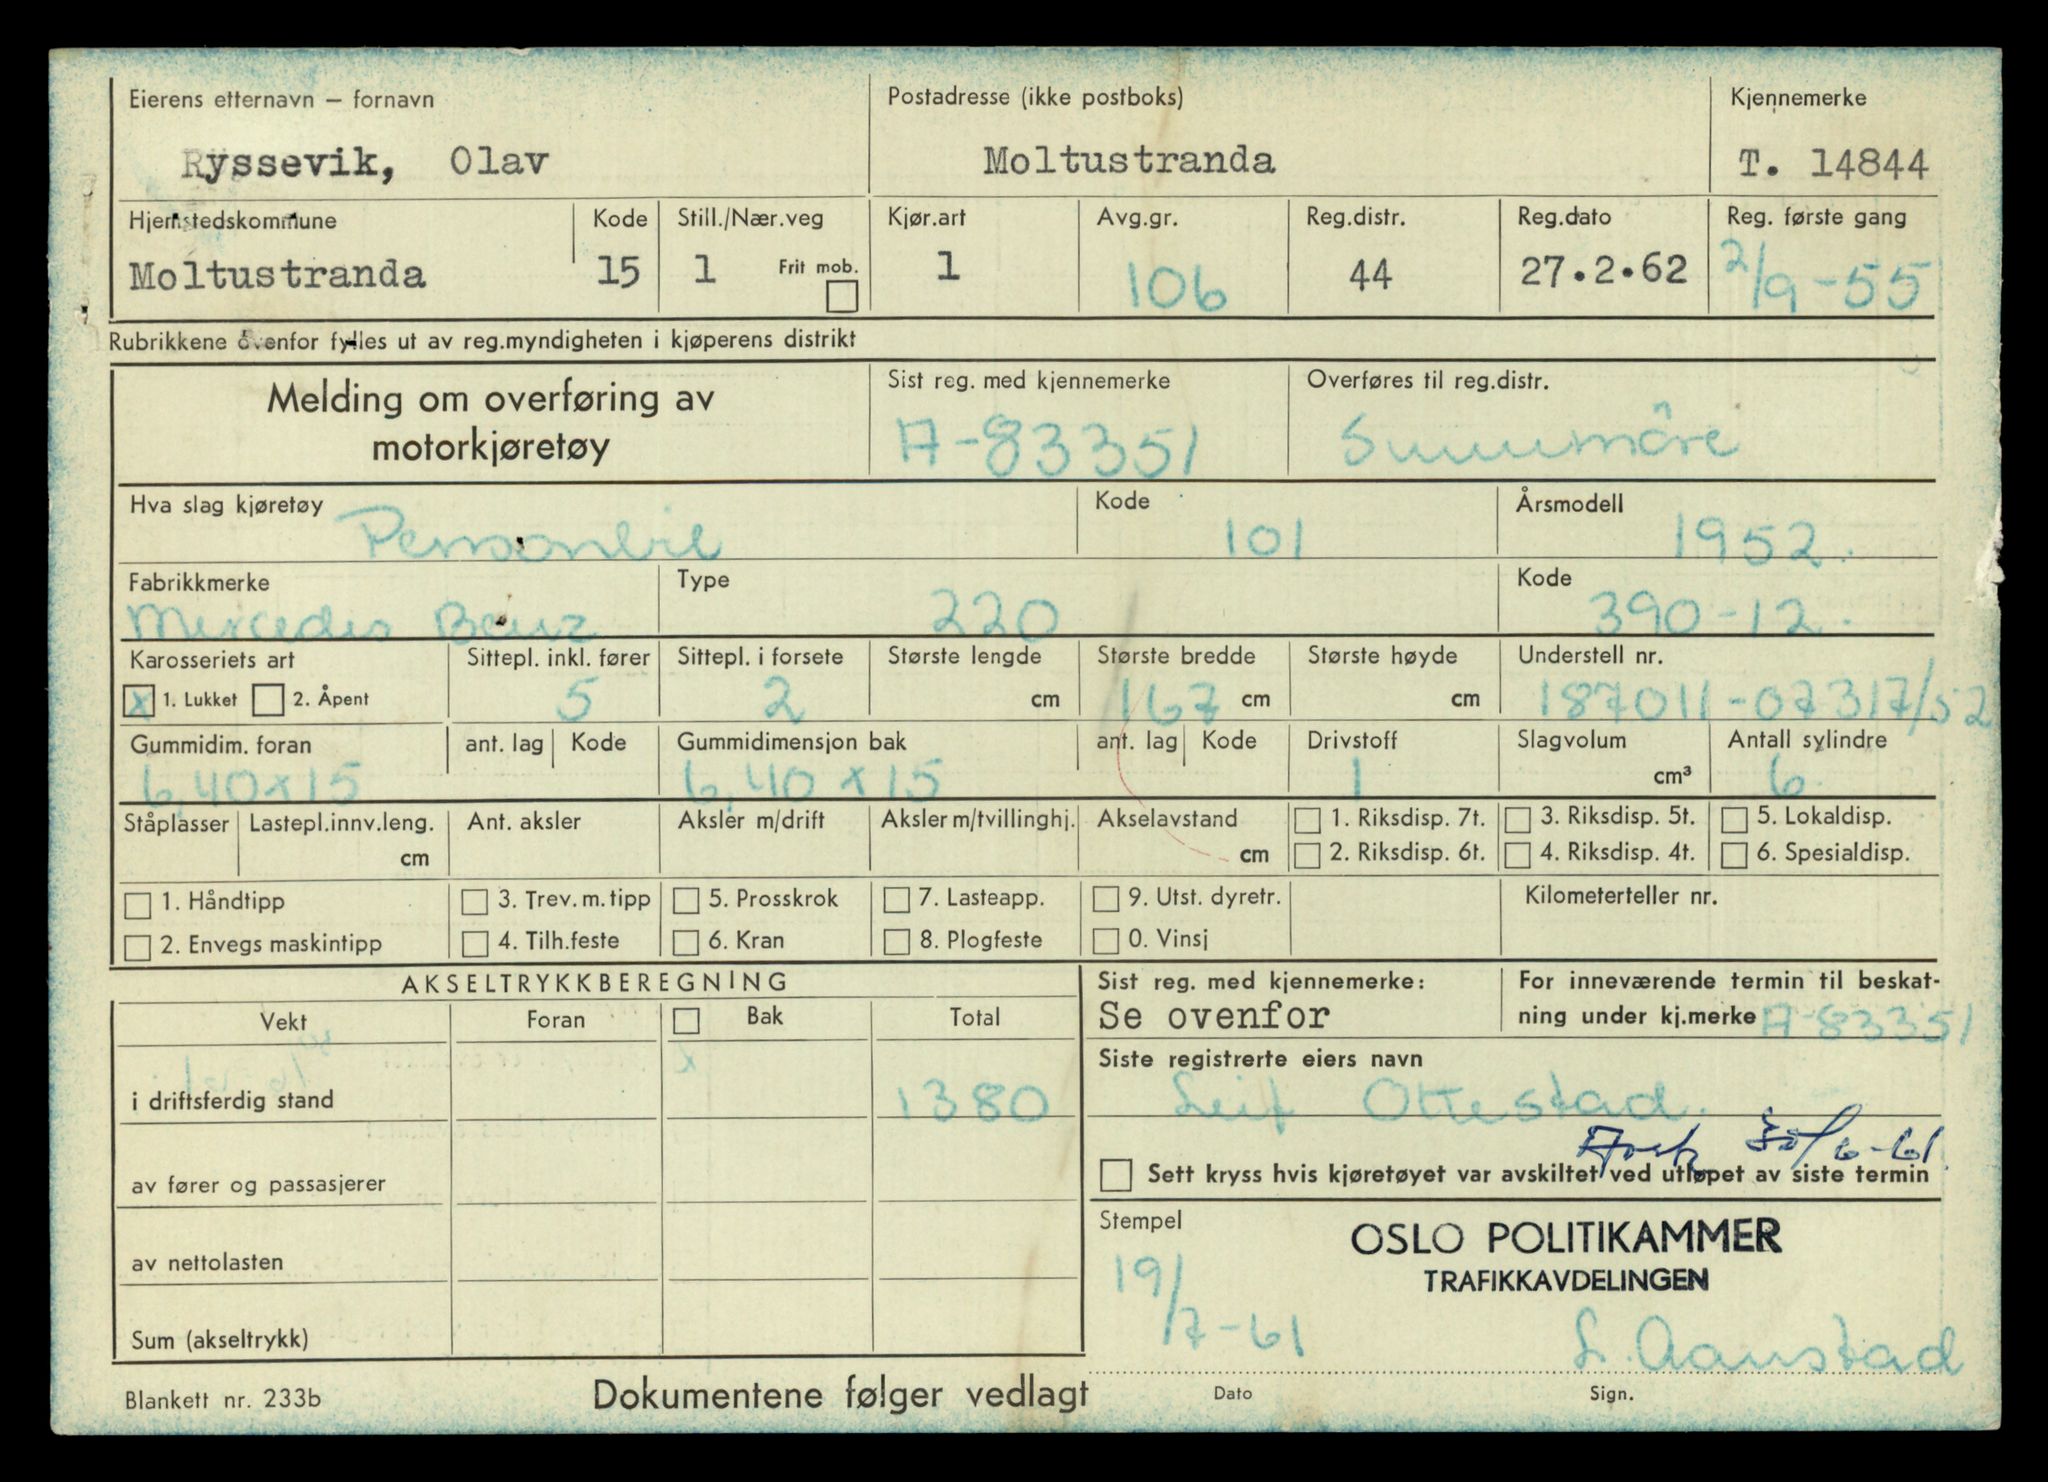 Eierens etternavn – fornavn Postadresse (ikke postboks) Kjennemerke
Ryssevik, Olav Moltustranda T. 14844
Hjemstedskommune Kode Still./Nær.veg Kjør.art Avg.gr. Reg.distr. Reg.dato Reg. første gang
Moltustranda 15 1 Frit mob. 1 106 44 27.2.62 2/9-55
Rubrikkene ovenfor fylles ut av reg.myndigheten i kjøperens distrikt
Melding om overføring av
motorkjøretøy
Sist reg. med kjennemerke Overføres til reg.distr.
A-83351 Sunnmöre
Hva slag kjøretøy Kode Årsmodell
Personbil 101 1952.
Fabrikkmerke Type Kode
Mercedes Benz 220 390-12.
Karosseriets art Sittepl. inkl. fører Sittepl. i forsete Største lengde Største bredde Største høyde Understell nr.
x 1. Lukket 2. Åpent 5 2 cm 167 cm cm 187011-07317/52
Gummidim. foran ant. lag Kode Gummidimensjon bak ant. lag Kode Drivstoff Slagvolum Antall sylindre
6,40x15 6,40x15 1 cm³ 6
Ståplasser Lastepl.innv.leng. Ant. aksler Aksler m/drift Aksler m/tvillinghj. Akselavstand 1. Riksdisp. 7t. 3. Riksdisp. 5t. 5. Lokaldisp.
cm cm 2. Riksdisp. 6t. 4. Riksdisp. 4t. 6. Spesialdisp.
1. Håndtipp 3. Trev. m. tipp 5. Prosskrok 7. Lasteapp. 9. Utst. dyretr. Kilometerteller nr.
2. Envegs maskintipp 4. Tilh.feste 6. Kran 8. Plogfeste 0. Vinsj
AKSELTRYKKBEREGNING
Vekt Foran Bak Total
x
i driftsferdig stand 1380
av fører og passasjerer
av nettolasten
Sum (akseltrykk)
Sist reg. med kjennemerke: For inneværende termin til beskat-
Se ovenfor ning under kj.merke A-83351
Siste registrerte eiers navn
Leif Ottestad.
30/6-61.
Sett kryss hvis kjøretøyet var avskiltet ved utløpet av siste termin
Stempel OSLO POLITIKAMMER
TRAFIKKAVDELINGEN
19/7-61 L. Aanstad
Dato Sign.
Blankett nr. 233b Dokumentene følger vedlagt